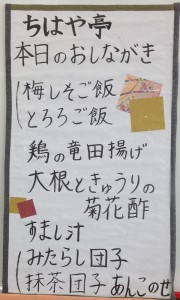 ちはや亭
本日のおしながき
梅しそご飯
とろろご飯
鶏の竜田揚げ
大根ときゅうりの
菊花酢
すまし汁
みたらし団子
抹茶団子 あんこのせ